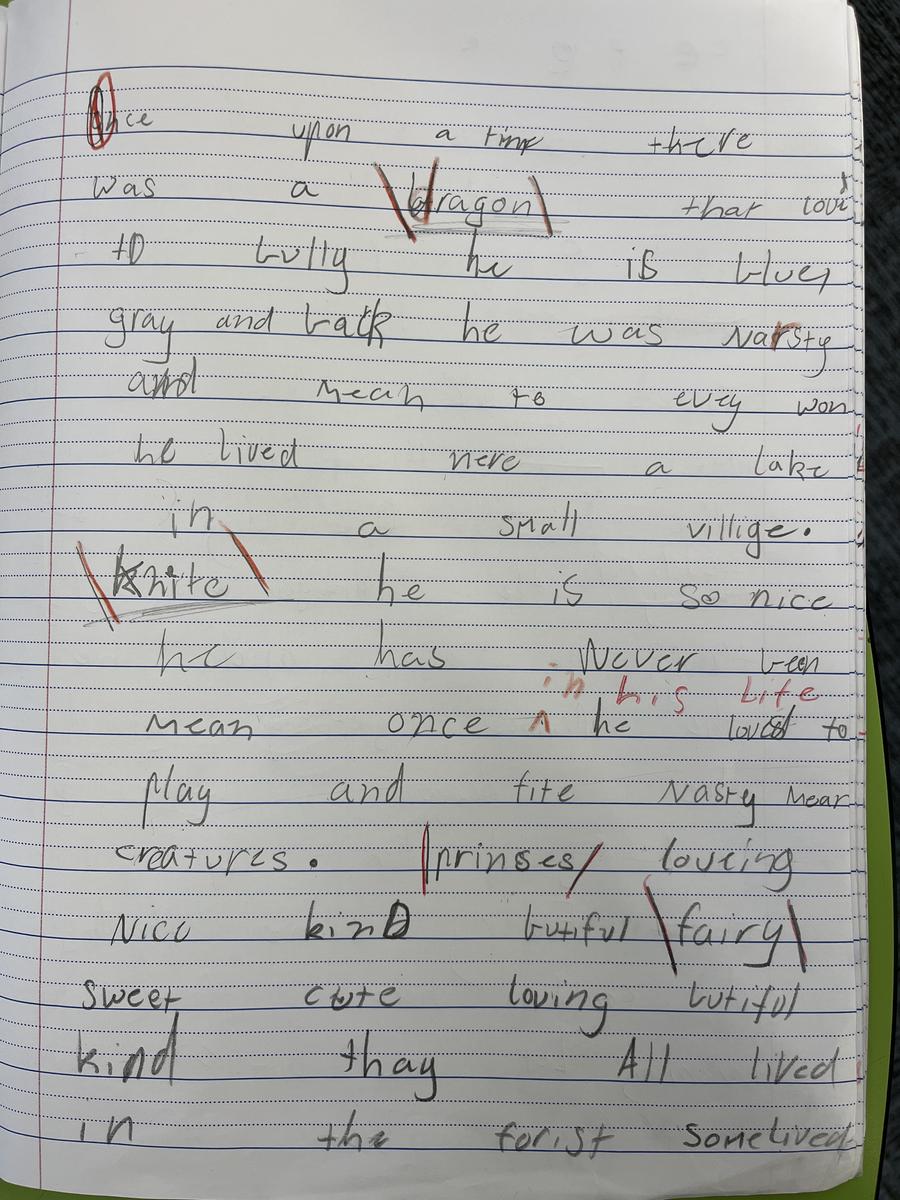 Once upon a time there
was a \dragon\ that lovs
to bully he is blue,
gray and back he was Narsty
and mean to evey won
he lived nere a lake
in a small villige.
\knite\ he is so nice
he has Never been
in his Life
mean once ^ he loved to
play and fite Nasty mean
creatures. |prinses/ loveing
Nice kinD butiful \fairy\
sweet cute loving butiful
kind thay All lived
in the forist some lived